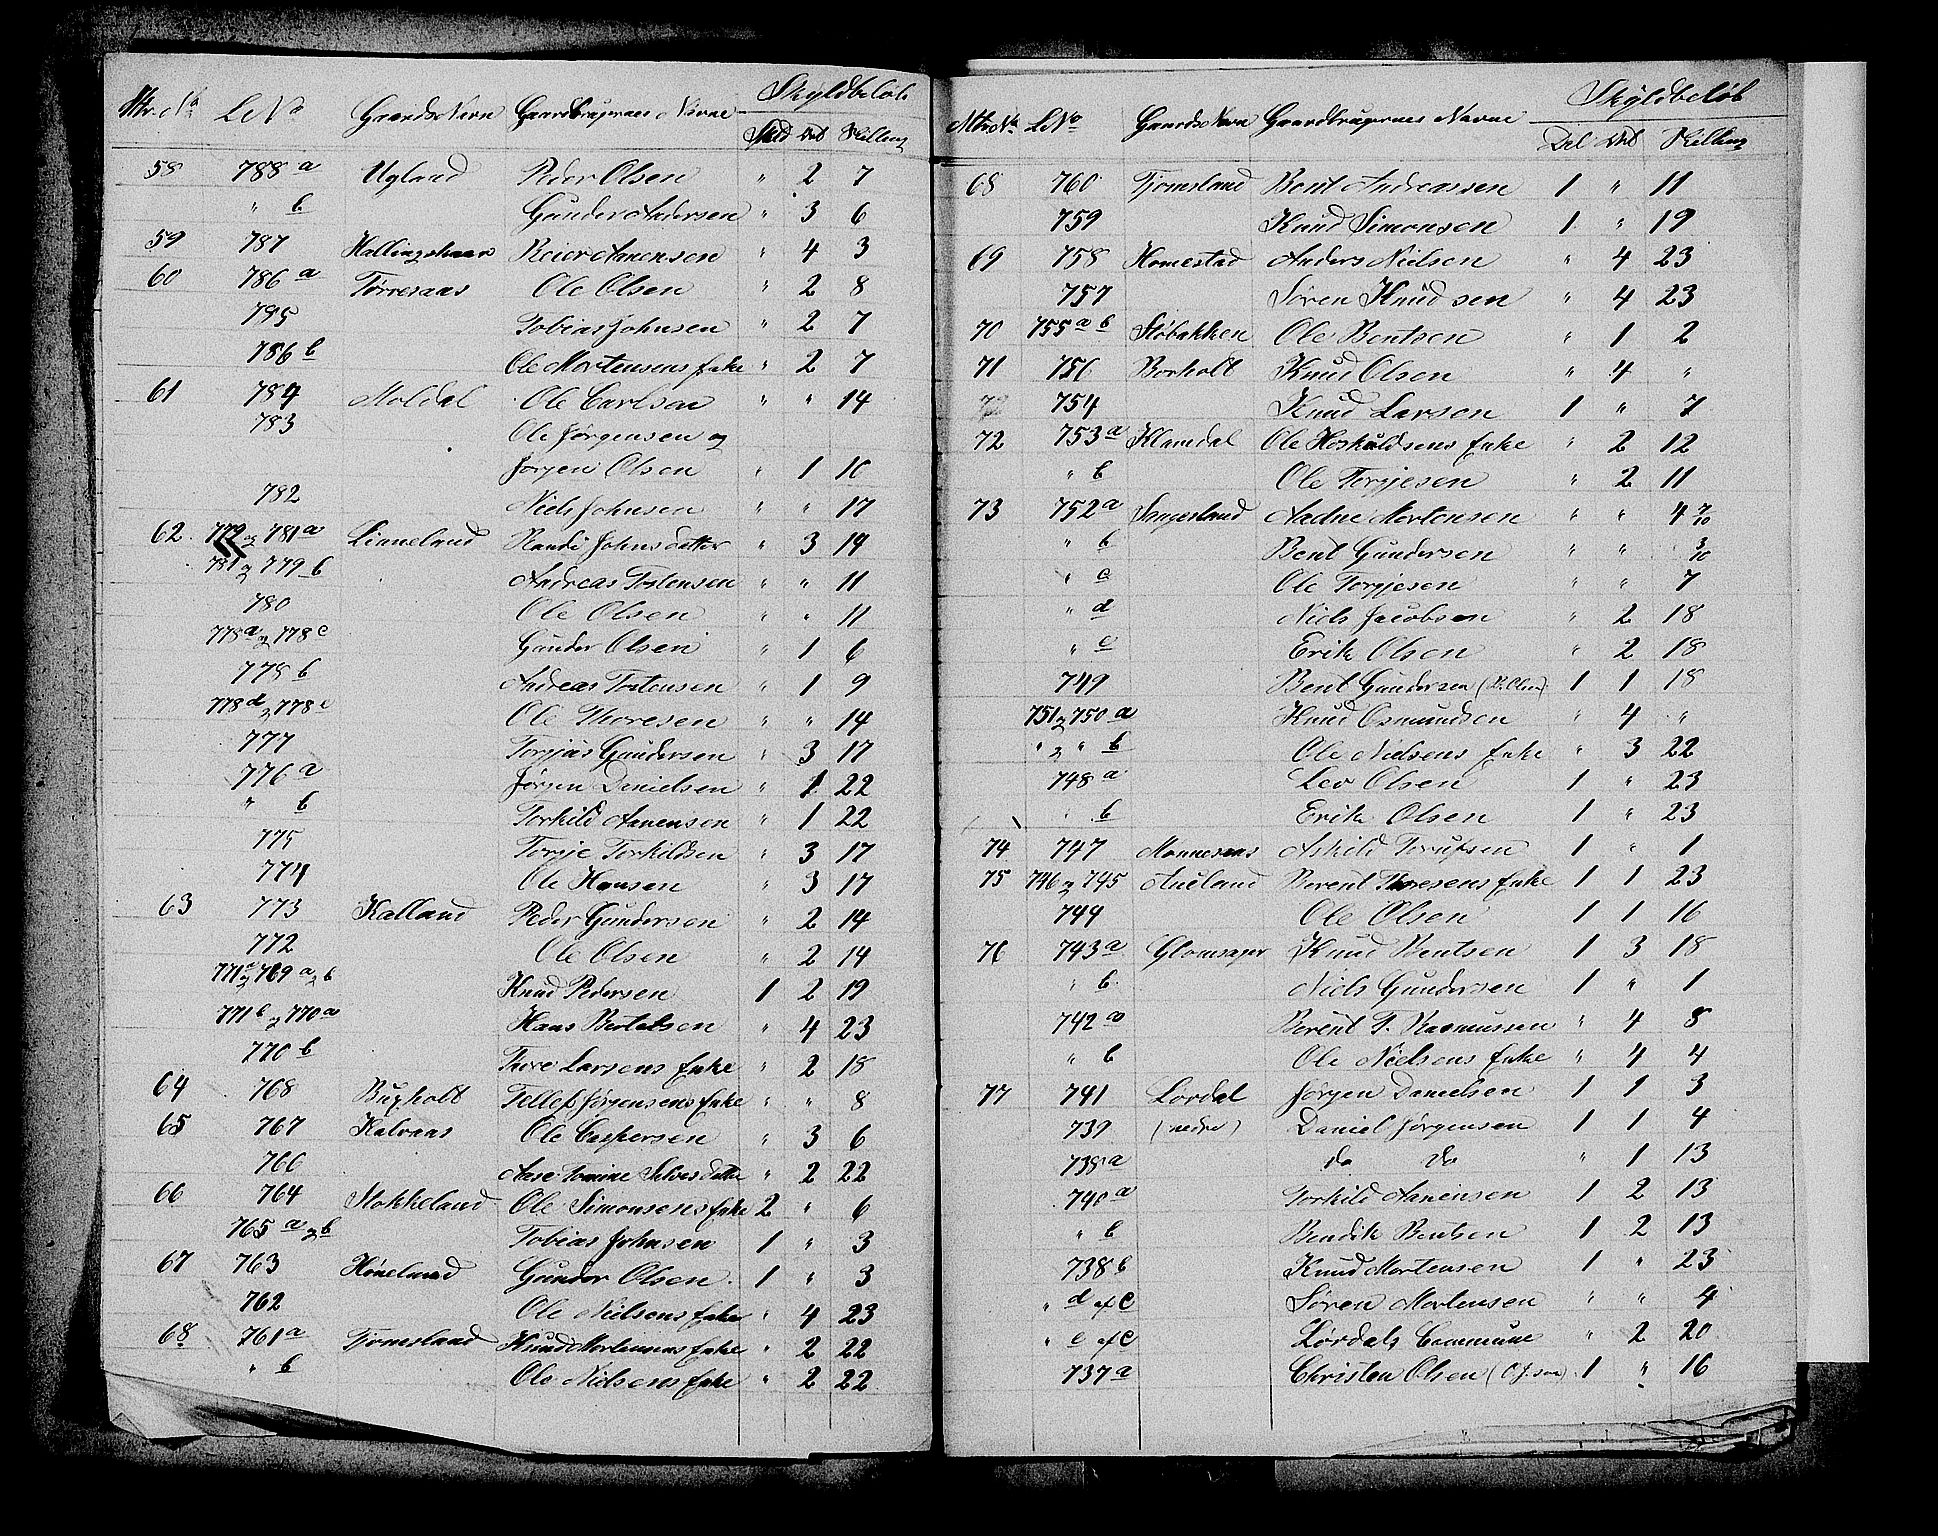 Mtr. No L No Gaards Navn Gaardbrugernes Navne Skyldbeløb
Skild Ort Skilling
58 788 a Ugland Peder Olsen " 2 7
" b Gunder Andersen " 3 6
59 787 Hallingskaar Reier Aanensen " 4 3
60 786 a Tørresaas Ole Olsen " 2 8
795 Tobias Johnsen " 2 7
786 b Ole Mortensens Enke " 2 7
61 784 Moldal Ole Carlsen " " 14
783 Ole Jørgensen og
Jørgen Olsen " 1 10
782 Niels Johnsen " " 17
62 779 og 781 a Linneland Randi Johnsdatter " 3 19
781 og 779 b Andreas Tostensen " " 11
780 Ole Olsen " " 11
778 a og 778 c Gunder Olsen " 1 6
778 b Andreas Tostensen " 1 9
778 d og 778 e Ole Thoresen " " 14
777 Torjus Gundersen " 3 17
776 a Jørgen Danielsen " 1 22
" b Torkild Aanensen " 1 22
775 Torje Torkildsen " 3 17
774 Ole Hansen " 3 17
63 773 Kalland Peder Gundersen " 2 14
772 Ole Olsen " 2 14
771 a og 769 a og b Knud Pedersen 1 2 19
771 b og 770 a Hans Bertelsen " 4 23
770 b Thore Larsens Enke " 2 18
64 768 Bugholt Tellef Jørgensens Enke " " 8
65 767 Kalvaas Ole Caspersen " 3 6
766 Aase Tomine Salvesdatter " 2 22
66 764 Stokkeland Ole Simonsens Enke 2 " 6
765 a og b Tobias Johnsen 1 " 3
67 763 Høneland Gunder Olsen 1 " 3
762 Ole Nielsens Enke " 4 23
68 761 a Tjomsland Knud Mortensens Enke " 2 22
" b Ole Nielsens Enke " 2 22
Mtr No L No Gaards Navn Gaardbrugernes Navne Skyldbeløb
Del Ort Skilling
68 760 Tjomsland Bent Andreassen 1 " 11
759 Knud Simonsen 1 " 19
69 758 Homestad Anders Nielsen " 4 23
757 Søren Knudsen " 4 23
70 755 a b Støbakken Ole Bentsen " 1 2
71 756 Borholt Knud Olsen " 4 "
754 Knud Larsen 1 " 7
72 753 a Klamdal Ole Hoskuldsens Enke " 2 12
" b Ole Torjesen " 2 11
73 752 a Sangesland Aadne Mortensen " " 4 7/10
" b Bent Gundersen " " 3/10
" c Ole Torjesen " " 7
" d Niels Jacobsen " 2 18
" e Erik Olsen " 2 18
749 Bent Gundersen 1 1 18
751 og 750 a Knud Osmundsen " 4 "
" og " b Ole Nielsens Enke " 3 22
748 a Lev Olsen 1 " 23
" b Erik Olsen 1 " 23
74 747 Monnesaas Askild 1 " 1
75 746 og 745 Aueland Berent Thoresens Enke 1 1 23
744 Ole Olsen 1 1 16
76 743 a Glomsager Knud Bentsen 1 3 18
" b Niels Gundersen 1 " 1
742 a Berent T. Rasmussen " 4 8
" b Ole Nielsens Enke " 4 4
77 741 Lordal Jørgen Danielsen 1 1 3
739 (nedre) Daniel Jørgensen 1 1 4
738 a do do " 1 13
740 a Torkild Aanensen 1 2 13
" b Bendik Bentsen 1 2 13
738 b Knud Mortensen 1 " 23
" d af c Søren Mortensen " " 4
" e af c Lørdals Commune " 2 20
737 a Christen Olsen 1 " 16